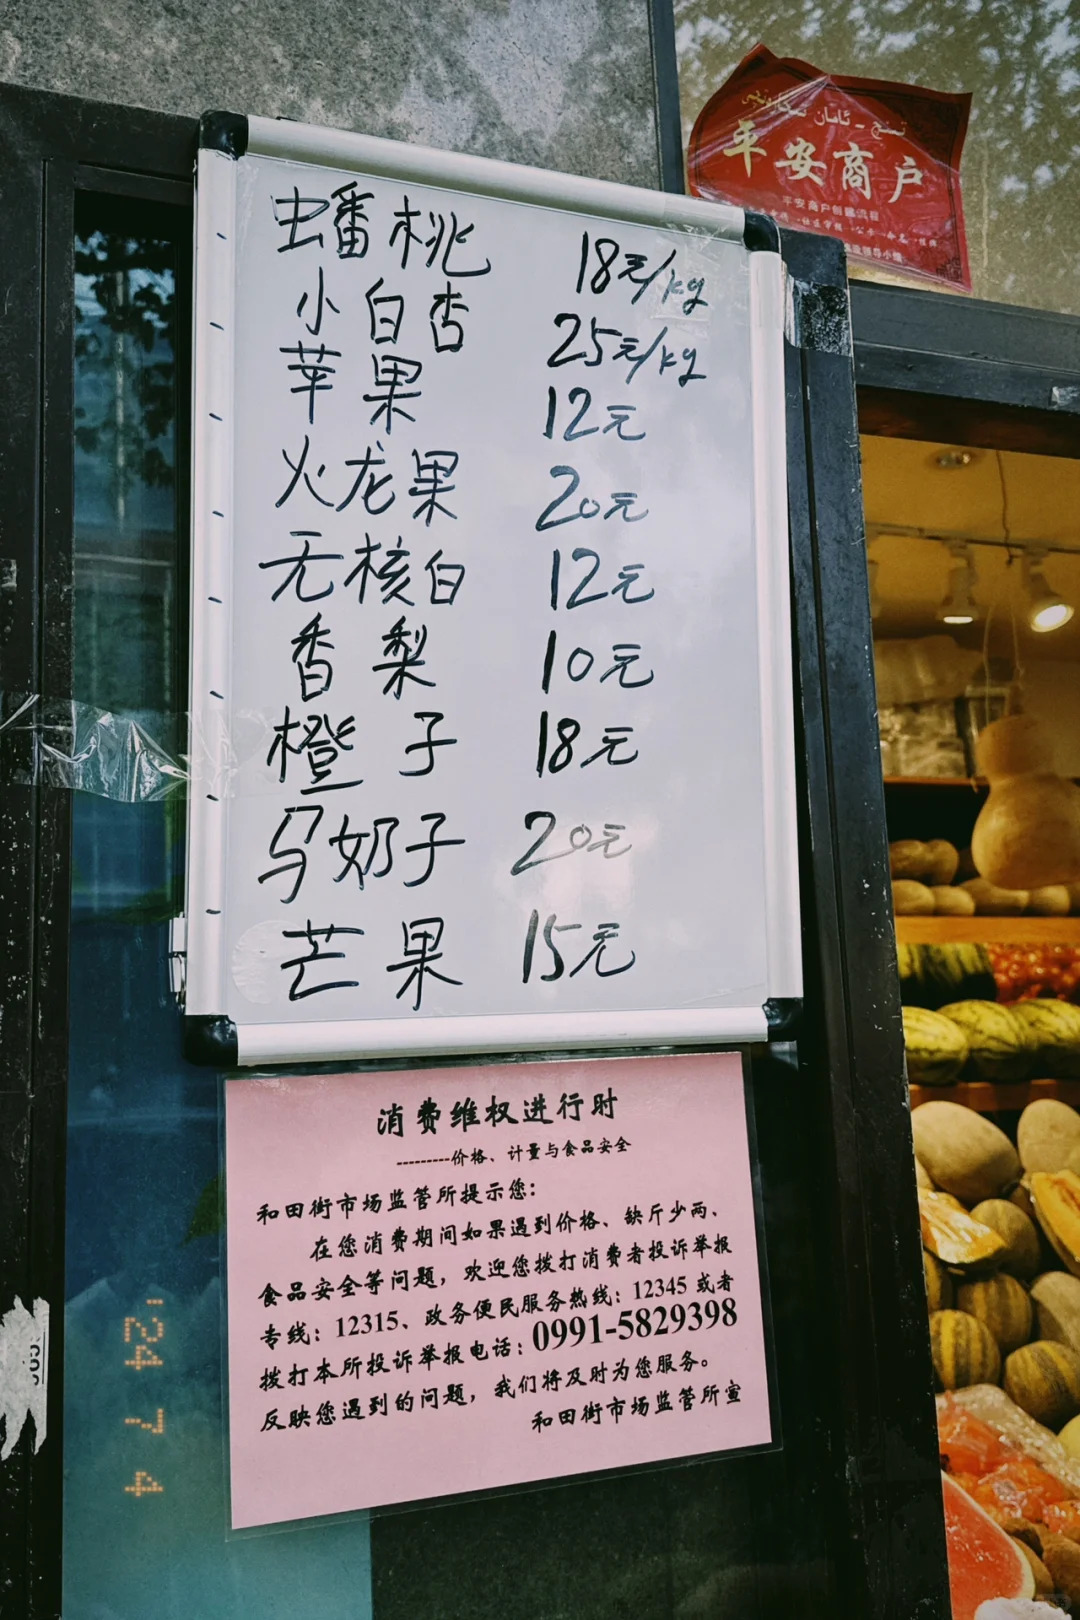 平安商户
平安商户创建流程
蟠桃 18元/kg
小白杏 25元/kg
苹果 12元
火龙果 20元
无核白 12元
香梨 10元
橙子 18元
马奶子 20元
芒果 15元
消费维权进行时
---------价格、计量与食品安全
和田街市场监管所提示您：
在您消费期间如果遇到价格、缺斤少两、
食品安全等问题，欢迎您拨打消费者投诉举报
专线：12315、政务便民服务热线：12345 或者
拨打本所投诉举报电话：0991-5829398
反映您遇到的问题，我们将及时为您服务。
和田街市场监管所宣
'24 7 4